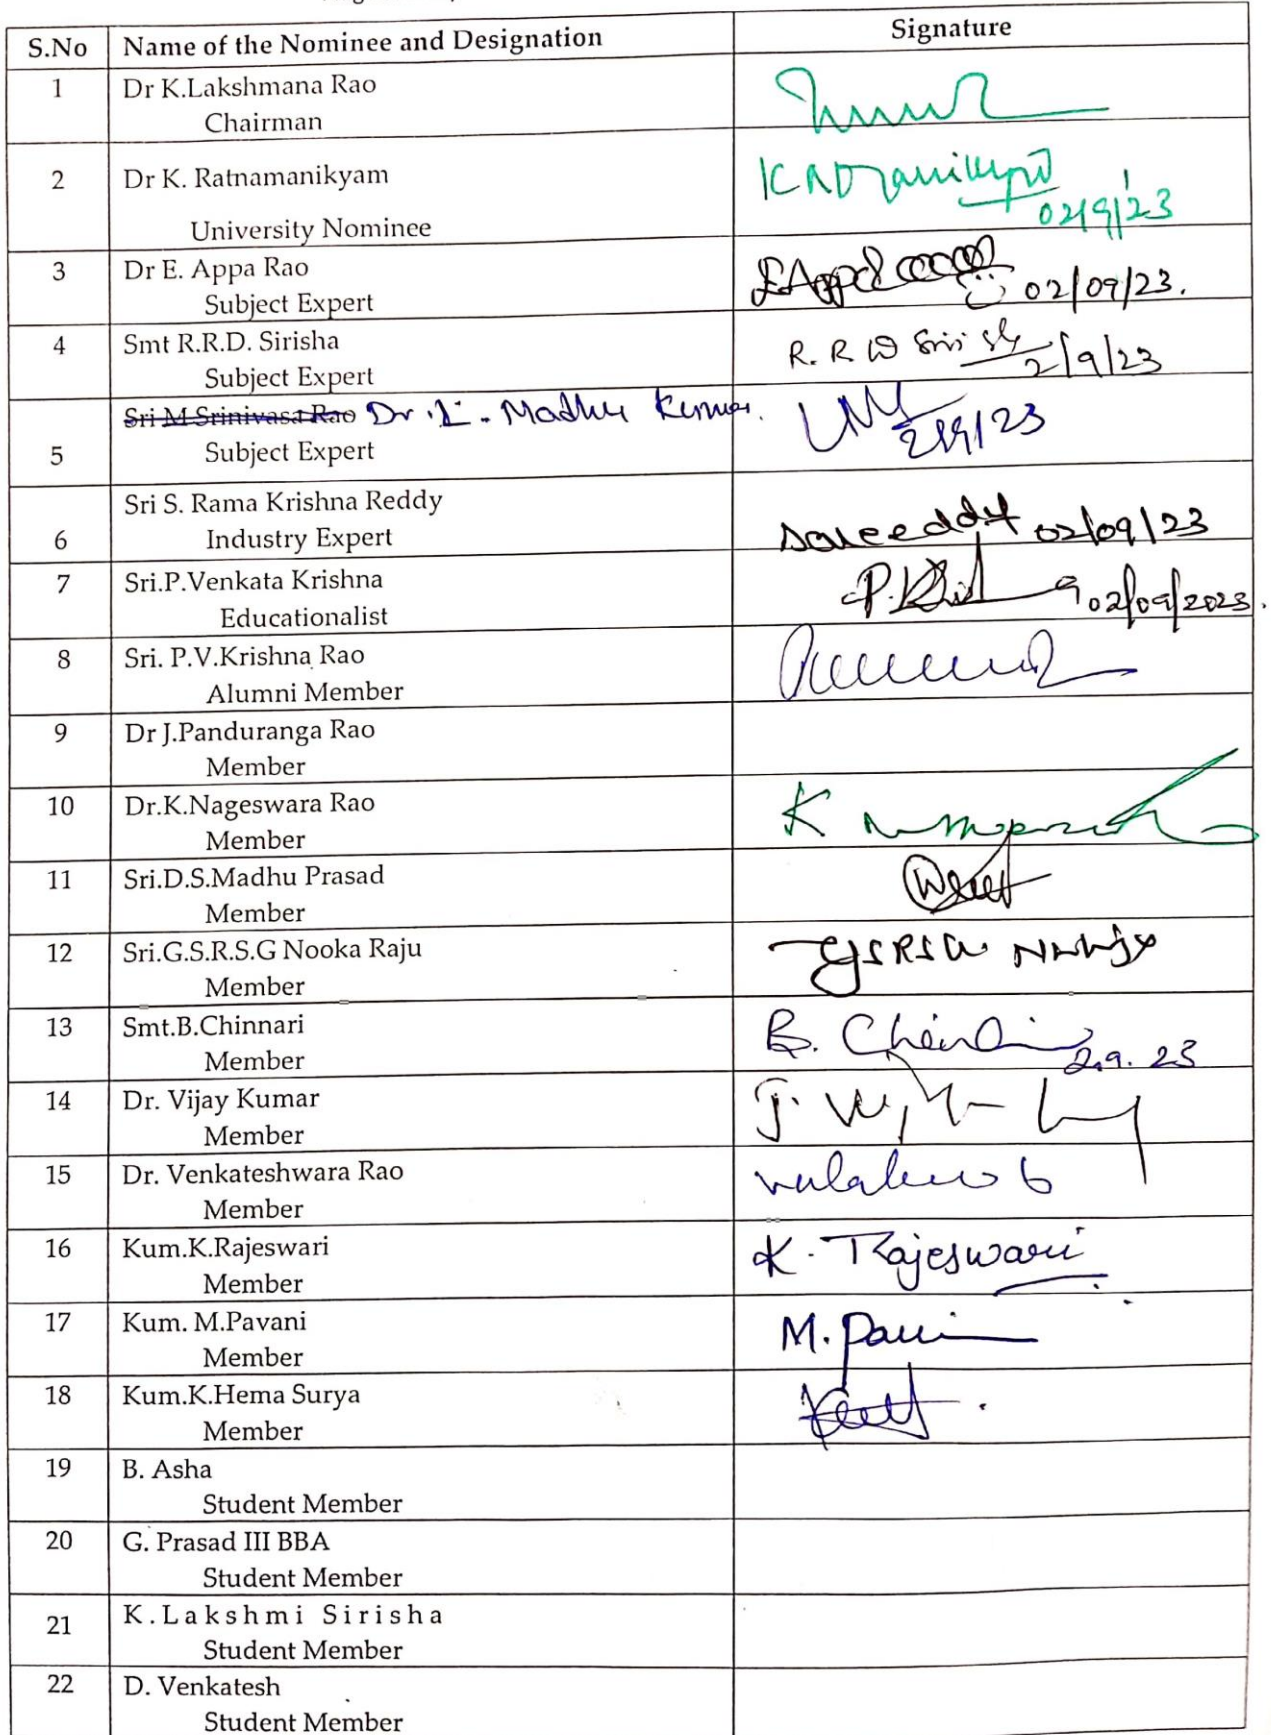 S.No Name of the Nominee and Designation Signature
1 Dr K.Lakshmana Rao
Chairman
2 Dr K. Ratnamanikyam
University Nominee
02/9/23
3 Dr E. Appa Rao
Subject Expert
02/09/23.
4 Smt R.R.D. Sirisha
Subject Expert
R. R D
2/9/23
Sri M Srinivasa Rao Dr. L. Madhu Kumar.
5 Subject Expert
2/9/23
Sri S. Rama Krishna Reddy
6 Industry Expert
02/09/23
7 Sri.P.Venkata Krishna
Educationalist
02/09/2023.
8 Sri. P.V.Krishna Rao
Alumni Member
9 Dr J.Panduranga Rao
Member
10 Dr.K.Nageswara Rao
Member
K
11 Sri.D.S.Madhu Prasad
Member
12 Sri.G.S.R.S.G Nooka Raju
Member
13 Smt.B.Chinnari
Member
B.
2.9.23
14 Dr. Vijay Kumar
Member
15 Dr. Venkateshwara Rao
Member
16 Kum.K.Rajeswari K. Rajeswari
Member
17 Kum. M.Pavani M.
Member
18 Kum.K.Hema Surya
Member
19 B. Asha
Student Member
20 G. Prasad III BBA
Student Member
21 K.Lakshmi Sirisha
Student Member
22 D. Venkatesh
Student Member